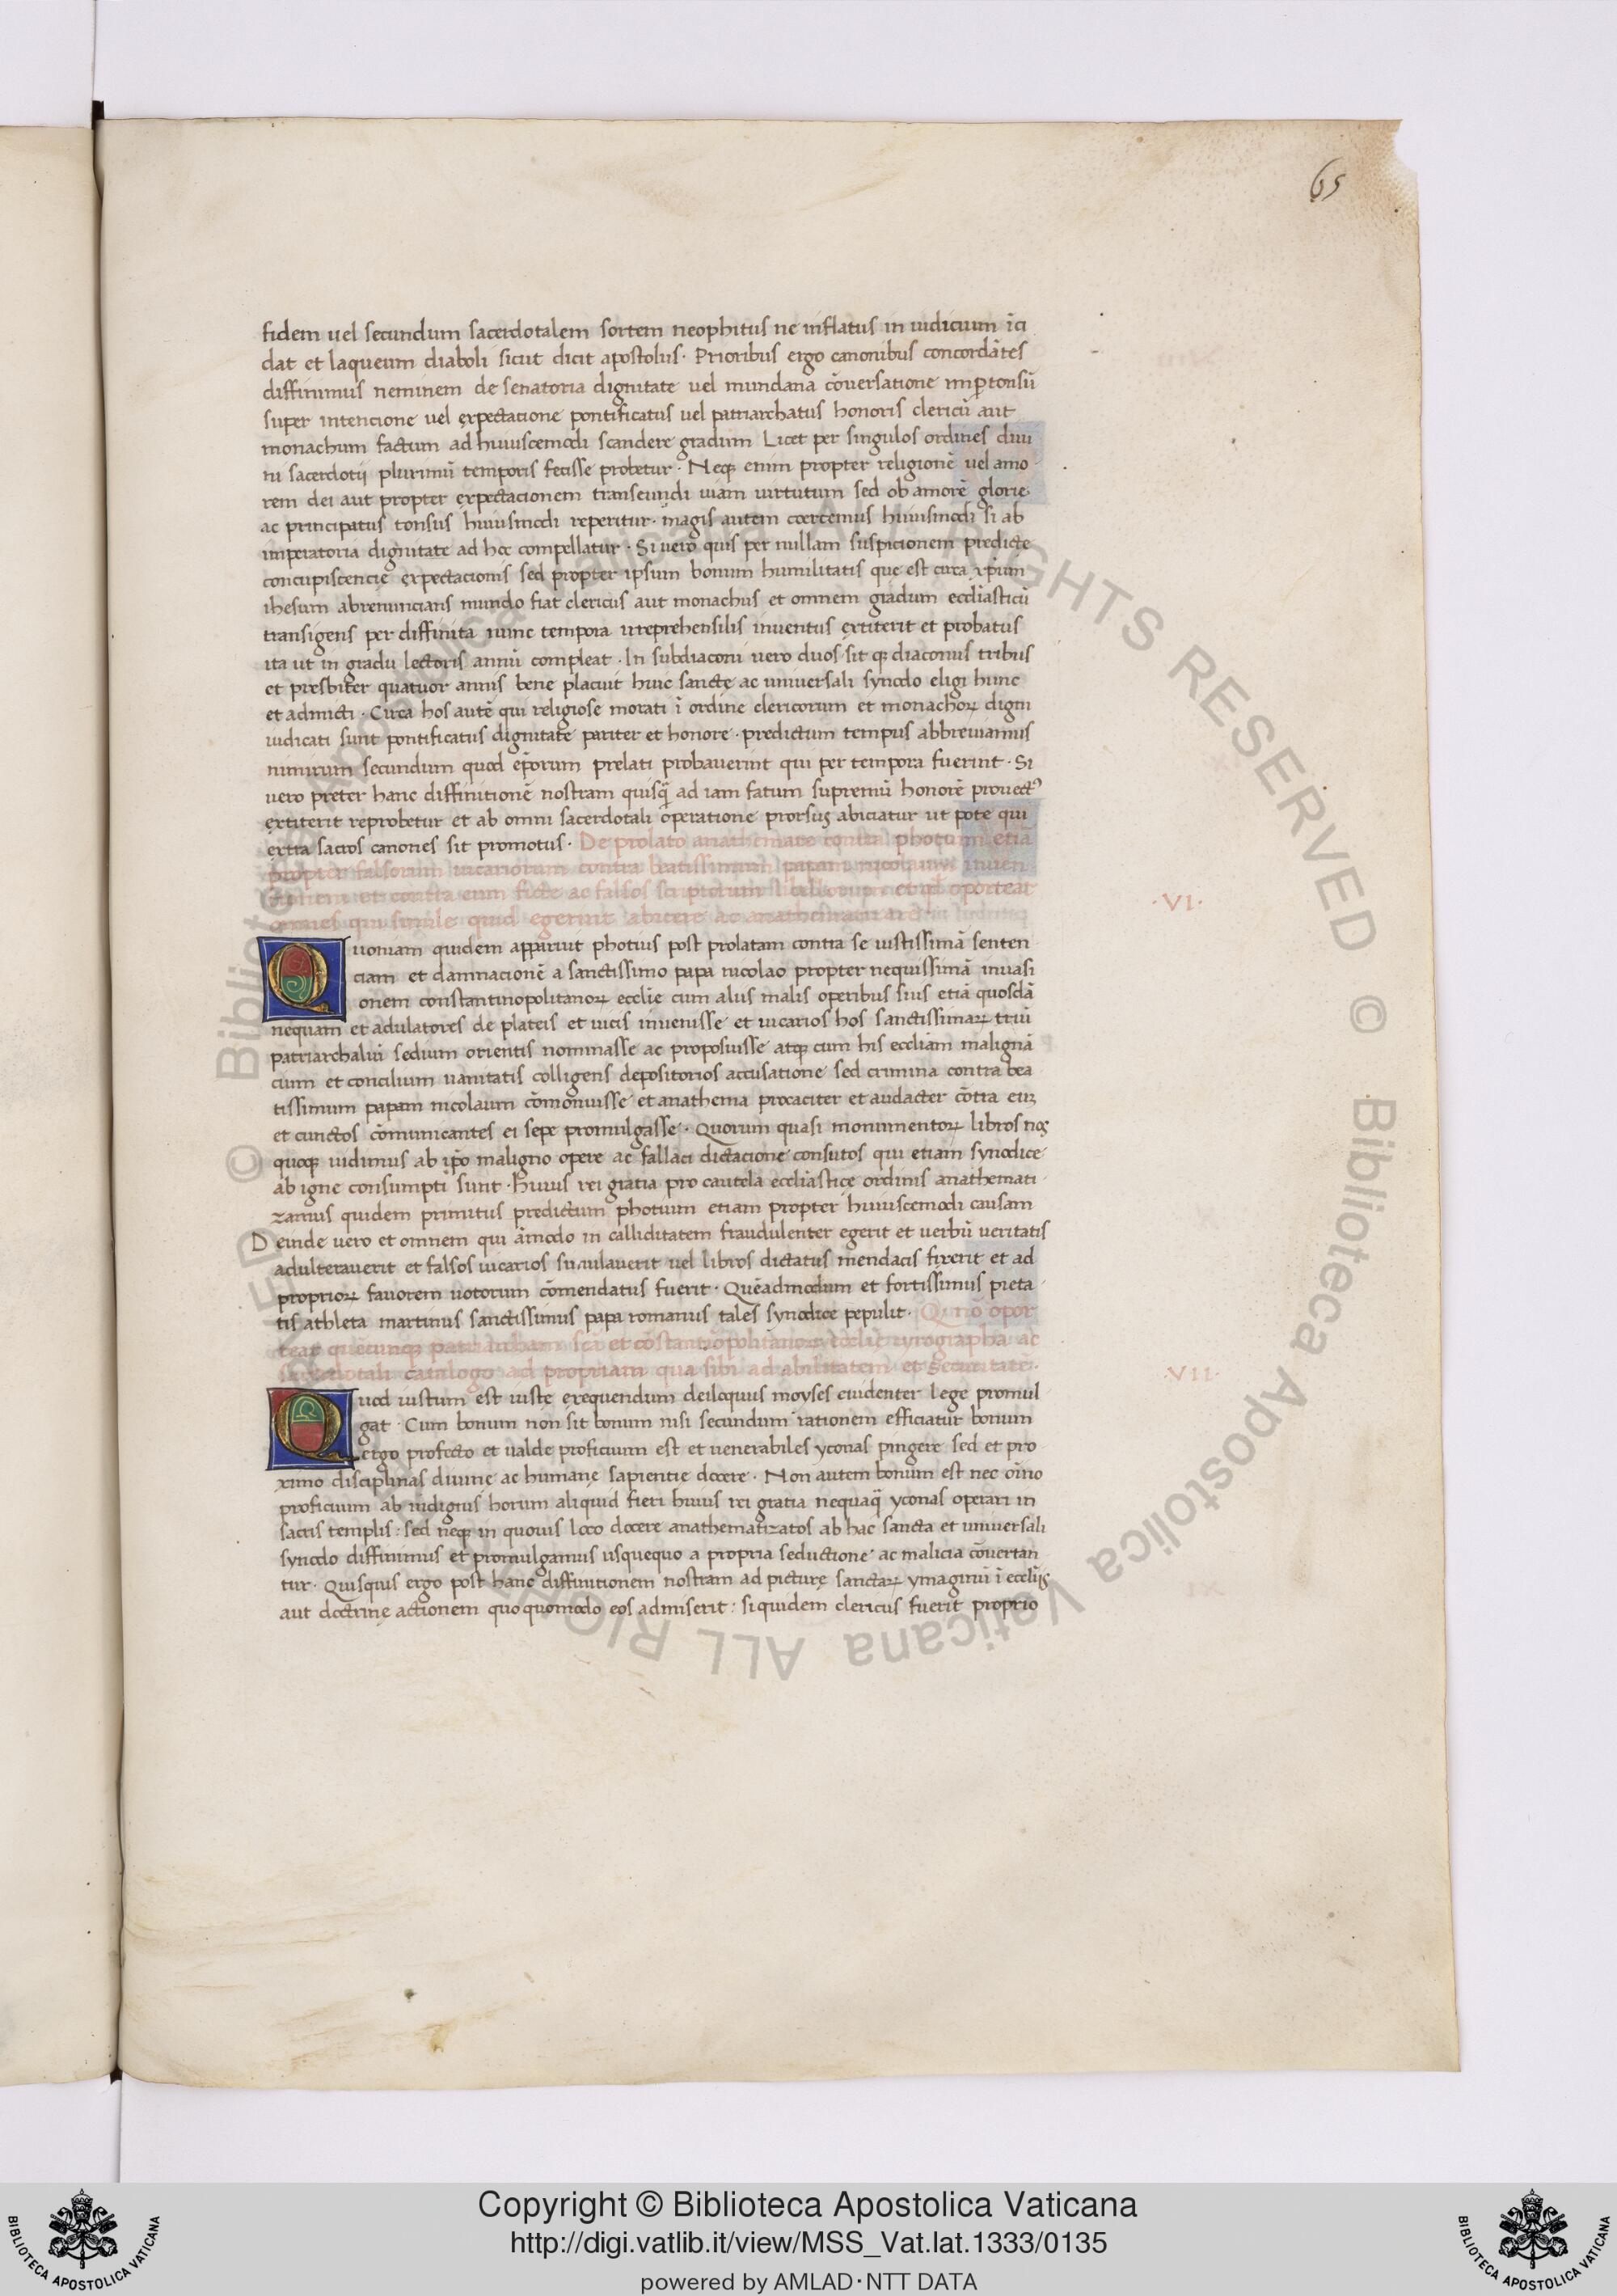 65
fidem uel secundum sacerdotalem sortem neophitus ne inflatus in iudicium ĩci
dat et laqueum diaboli sicut dicit apostolus · Prioribus ergo canonibus concordãtes
diffinimus neminem de senatoria dignitate uel mundana cõuersatione nuꝑ tonsũ
super intencione uel expectacione pontificatus uel patriarchatus honoris clericũ aut
monachum factum ad huiuscemodi scandere gradum Licet per singulos ordines diui
ni sacerdotij plurimũ temporis fecisse probetur · Neqꝫ enim propter religionẽ uel amo
rem dei aut propter expectacionem transeundi uiam uirtutum sed ob amorẽ glorie
ac principatus tonsus huiusmodi reperitur · magis autem coercemus huiusmodi si ab
imperatoria dignitate ad hoc compellatur · Si uero quis per nullam suspicionem predicte
concupiscencię expectacionis sed propter ipsum bonum humilitatis que est circa xp̃um
ihesum abrenuncians mundo fiat clericus aut monachus et omnem gradum eccl̃iasticũ
transigens per diffinita nunc tempora irreprehensilis inuentus extiterit et probatus
ita ut in gradu lectoris annũ compleat · In subdiaconi uero duos sit qꝫ diaconus tribus
et presbiter quatuor annis bene placuit huic sancte ac uniuersali synodo eligi hunc
et admicti · Circa hos autẽ qui religiose morati ĩ ordine clericorum et monachoꝝ digni
iudicati sunt pontificatus dignitate pariter et honore · predictum tempus abbreuiamus
nimirum secundum quod ep̃orum prelati probauerint qui per tempora fuerint · Si
uero preter hanc diffinitionẽ nostram quisq̃ ad iam fatum supremũ honorẽ prouectꝰ
extiterit reprobetur et ab omni sacerdotali operatione prorsus abiciatur ut pote qui
extra sacros canones sit promotus · De prolato anathemate contra photium etiã
propter falsorum uicariorum contra beatissimum papam nicolaum inuen
tionem et contra eum ficte ac falsos scriptorum libellorum et qd̃ oporteat
omnes qui simile quid egerint abicere ac anathematizare
·VI·
Quoniam quidem apparuit photius post prolatam contra se iustissimã senten
ciam et damnacionẽ a sanctissimo papa nicolao propter nequissimã inuasi
onem constantinopolitanoꝝ eccl̃ie cum aliis malis operibus suis etiã quosdã
nequam et adulatores de plateis et uicis inuenisse et uicarios hos sanctissimaꝝ triũ
patriarchaliũ sedium orientis nominasse ac proposuisse atqꝫ cum his eccl̃iam malignã
cium et concilium uanitatis colligens depositorios accusatione sed crimina contra bea
tissimum papam nicolaum cõmonuisse et anathema procaciter et audacter cõtra euꝫ
et cunctos cõmunicantes ei sepe promulgasse · Quorum quasi monumentoꝝ libros nos
quoqꝫ uidimus ab ip̃o maligno opere ac fallaci dictacione consutos qui etiam synodice
ab igne consumpti sunt · huius rei gratia pro cautela eccl̃iastice ordinis anathemati
zamus quidem primitus predictum photium etiam propter huiuscemodi causam
Deinde uero et omnem qui ãmodo in calliditatem fraudulenter egerit et uerbũ ueritatis
adulterauerit et falsos uicarios simulauerit uel libros dictatus mendacis fixerit et ad
proprioꝝ fauorem uotorum cõmendatus fuerit · Quẽadmodum et fortissimus pieta
tis athleta martinus sanctissimus papa romanus tales synodice pepulit · Q̃ nõ opor
teat quecunqꝫ patriarcham seu et cõstantinopolitanoꝝ eccl̃ie cyrographa ac
sacerdotali catalogo ad propriam qua sibi ad abilitatem et securitatẽ ·
·VII·
Quod iustum est iuste exequendum deiloquus moyses euidenter lege promul
gat · Cum bonum non sit bonum nisi secundum rationem efficiatur bonum
ergo profecto et ualde proficuum est et uenerabiles yconas pingere sed et pro
ximo disciplinas diuinę ac humanę sapientie docere · Non autem bonum est nec oĩno
proficuum ab indignis horum aliquid fieri huius rei gratia nequaq̃ yconas operari in
sacris templis : sed neqꝫ in quouis loco docere anathematizatos ab hac sancta et uniuersali
synodo diffinimus et promulgamus usquequo a propria seductione ac malicia cõuertan
tur · Quisquis ergo post hanc diffinitionem nostram ad picturę sanctaꝝ ymaginũ ĩ eccl̃ijs
aut doctrinę actionem quo quomodo eos admiserit : siquidem clericus fuerit proprio
Copyright © Biblioteca Apostolica Vaticana
http://digi.vatlib.it/view/MSS_Vat.lat.1333/0135
powered by AMLAD·NTT DATA